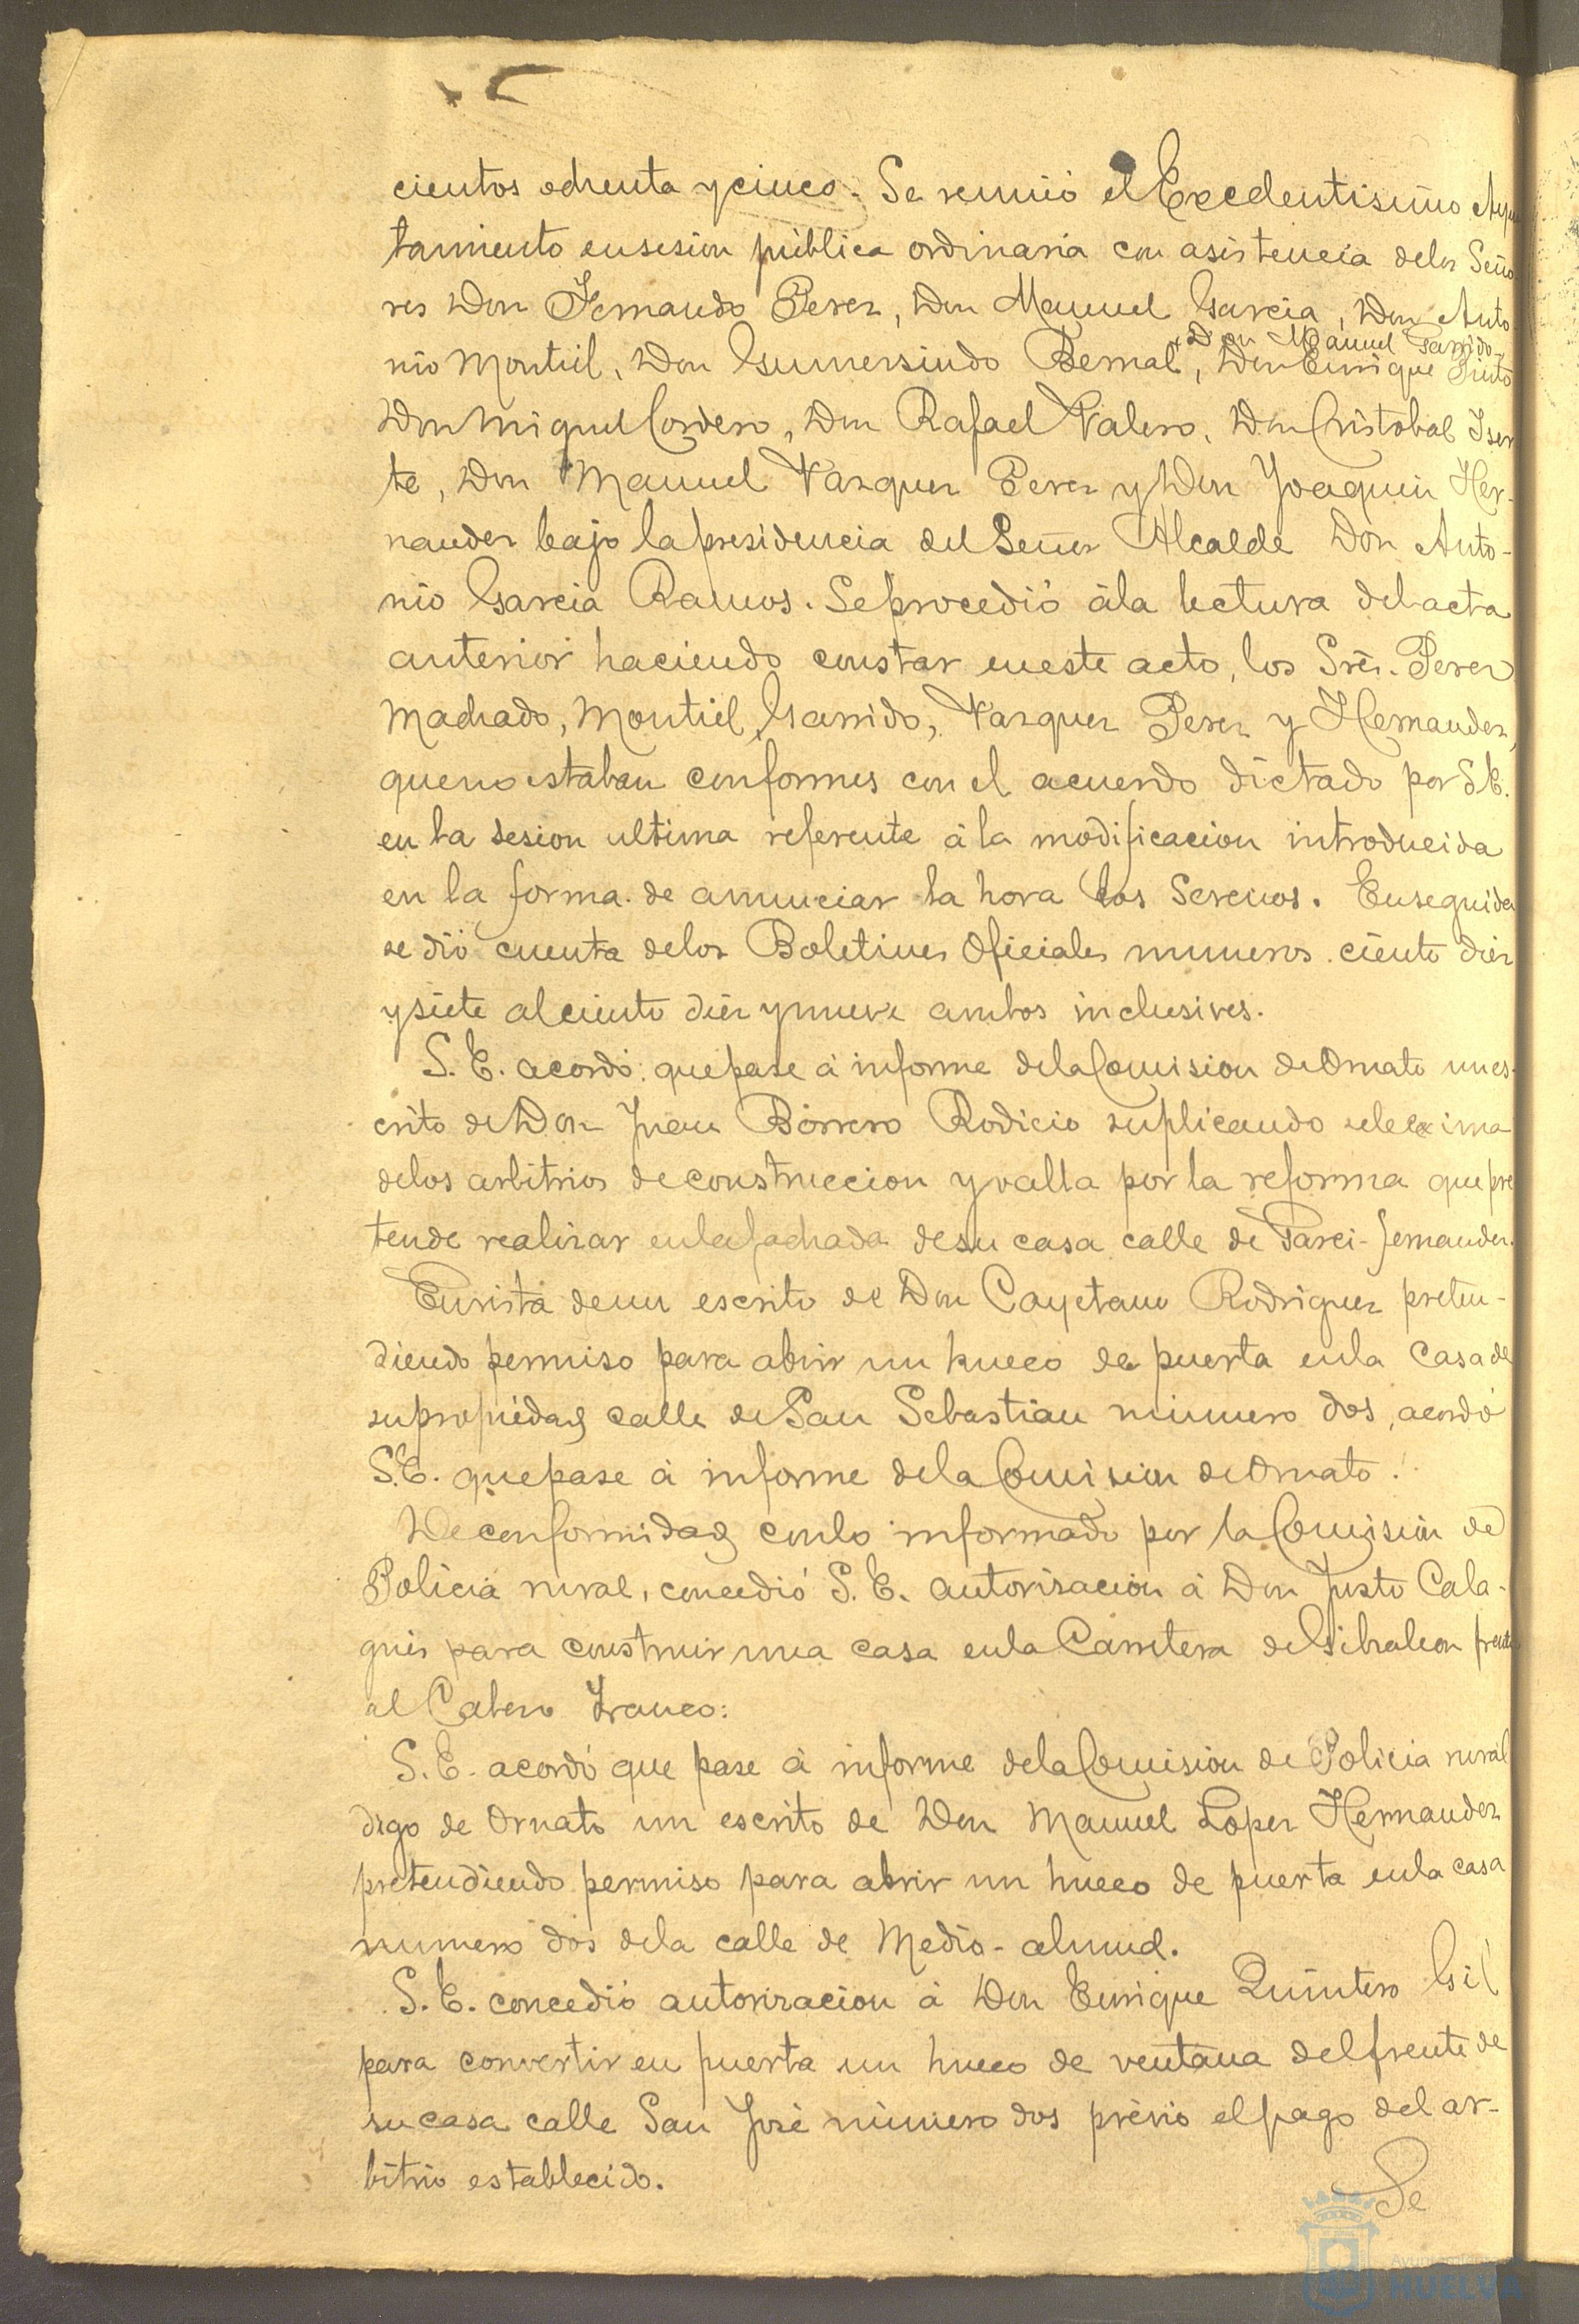 cientos ochenta y cinco. Se reunió el Excelentisimo Ayun
tamiento en sesion pública ordinaria con asistencia de los Seño
res Don Fernando Perez, Don Manuel Garcia, Don Anto
Don Manuel Garrido
nio Montiel, Don Gumersindo Bernal, Don Enrique Pinto
Don Miguel Cordero, Don Rafael Valero, Don Cristobal Iser
te, Don Manuel Vazquez Perez y Don Joaquin Her-
nandez bajo la presidencia del Señor Alcalde Don Anto-
nio Garcia Ramos. Se procedió á la lectura del acta
anterior haciendo constar en este acto, los Sres. Perez
Machado, Montiel, Garrido, Vazquez Perez y Hernandez,
que no estaban conformes con el acuerdo dictado por S.E.
en la sesion ultima referente á la modificacion introducida
en la forma de anunciar la hora los Serenos. Enseguida
se dió cuenta de los Boletines Oficiales numeros ciento diez
y siete al ciento diez y nueve ambos inclusives.
S. E. acordó que pase á informe de la Comision de Ornato un es-
crito de Don Juan Borrero Rodicio suplicando se le exima
de los arbitrios de construccion y valla por la reforma que pre
tende realizar en la fachada de su casa calle de Garci-fernandez.
En vista de un escrito de Don Cayetano Rodriguez preten-
diendo permiso para abrir un hueco de puerta en la casa de
su propiedad calle de San Sebastian número dos, acordó
S.E. que pase á informe de la Comision de Ornato.
De conformidad con lo informado por la Comision de
Policia rural, concedió S. E. autorisacion á Don Justo Cala-
guis para construir una casa en la Carretera de Gibraleon frente
al Cabezo Franco:
S. E. acordó que pase á informe de la Comision de Policia rural
digo de Ornato un escrito de Don Manuel Lopez Hernandez
pretendiendo permiso para abrir un hueco de puerta en la casa
numero dos de la calle de Medio-almud.
S. E. concedió autorizacion á Don Enrique Quintero Gil
para convertir en puerta un hueco de ventana del frente de
su casa calle San José número dos prévio el pago del ar-
bitrio establecido.
Se
Ayuntamiento
HUELVA